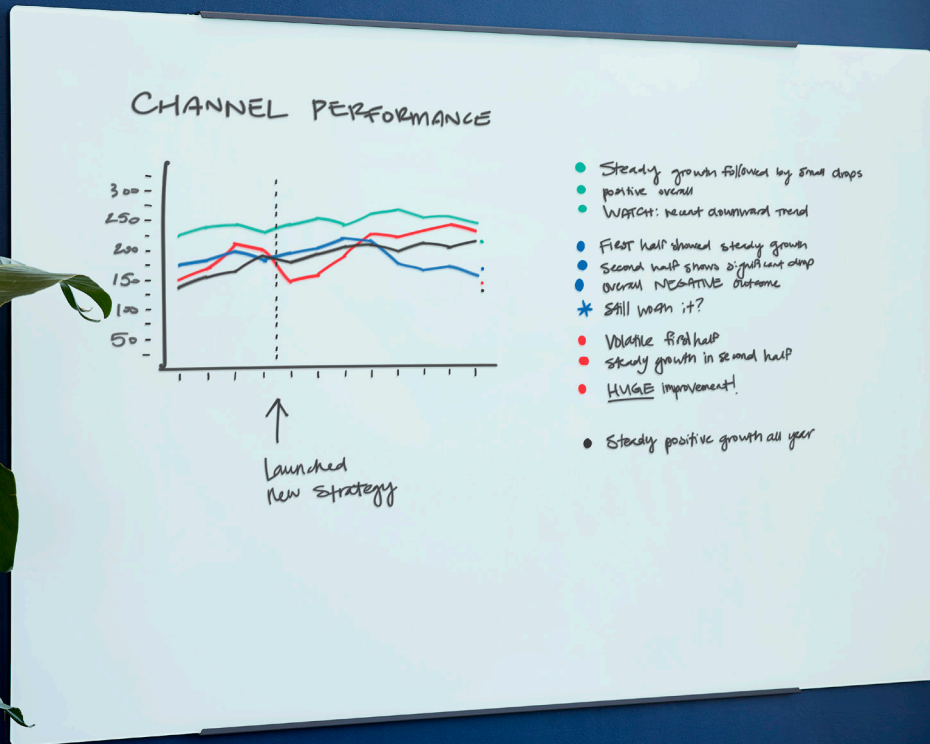 CHANNEL PERFORMANCE
300
250
200
150
100
50
Launched
new strategy
Steady growth followed by small drops
positive overall
WATCH: recent downward trend
First half showed steady growth
Second half shows significant drop
overall NEGATIVE outcome
Still worth it?
Volatile first half
Steady growth in second half
HUGE improvement!
Steady positive growth all year